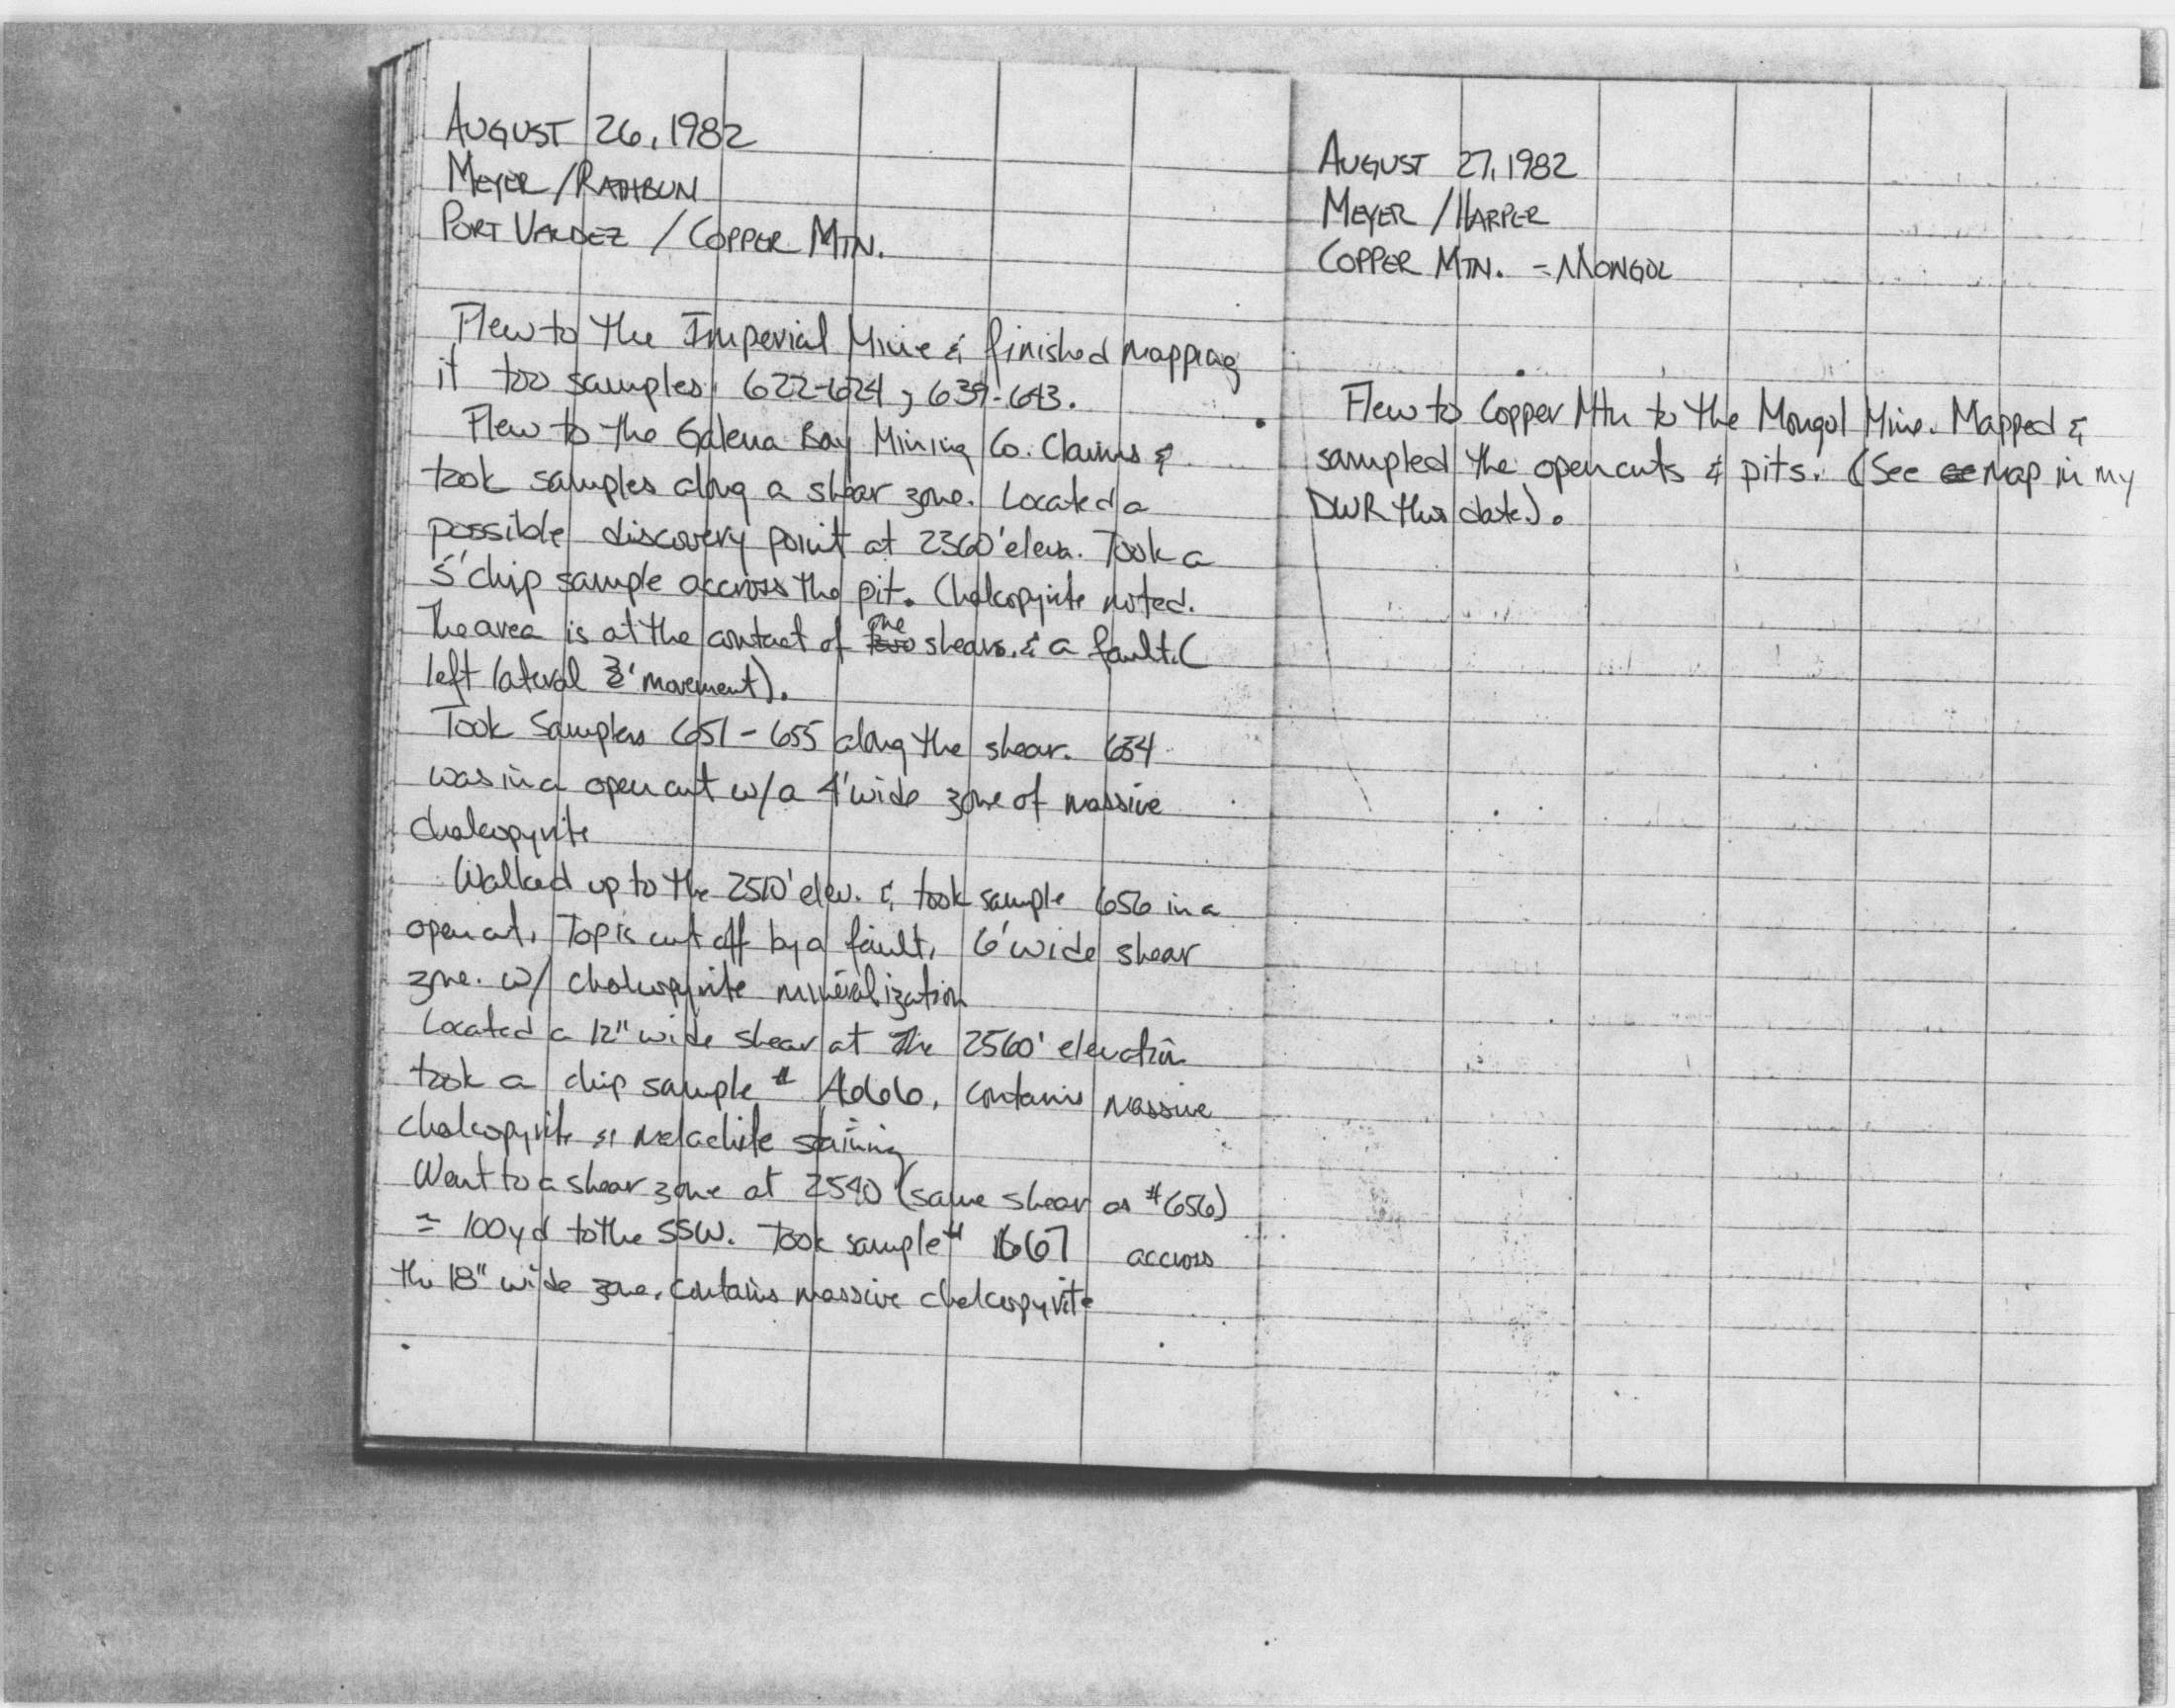 AUGUST 26, 1982
MEYER/RATHBUN
PORT VALDEZ / COPPER MTN.
Flew to the Imperial Mine & finished mapping
it too samples 622-624, 639-643.
Flew to the Galena Bay Mining Co. Claims &
took samples along a shear zone. Located a
possible discovery point at 2360' elev. Took a
5' chip sample accross the pit. Chalcopyrite noted.
The area is at the contact of the shears. & a fault. (
left lateral 3' movement).
Took Samples 651-655 along the shear. 654
was in a open cut w/a 4' wide zone of massive
chalcopyrite
Walked up to the 2510' elev. & took sample 656 in a
open cut. Top is cut off by a fault. 6' wide shear
zone. w/ chalcopyrite mineralization
Located a 12" wide shear at the 2560' elevation
took a chip sample # contains massive
chalcopyrite & melachite staining
Went to a shear zone at 2540 (same shear as #656)
≈ 100yd to the SSW. Took sample # accross
the 18" wide zone. Contains massive chalcopyrite
AUGUST 27, 1982
MEYER / HARPER
COPPER MTN. - MONGOL
Flew to Copper Mtn to the Mongol Mine. Mapped &
sampled the opencuts & pits. (See map in my
DWR this date).